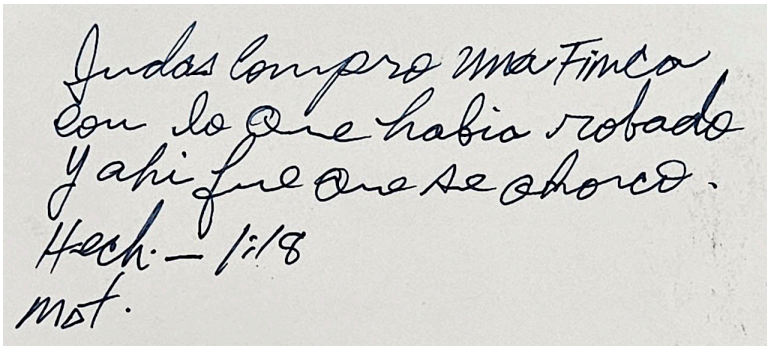 Judas compro una Finca
con lo que habia robado
y ahi fue que se ahorco.
Hech. — 1:18
Mat.